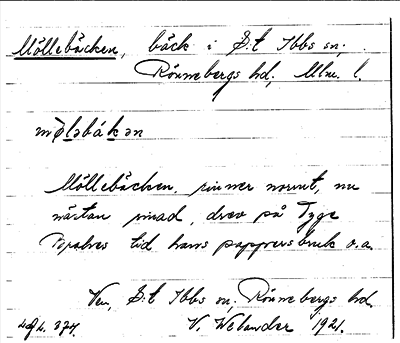 Möllebäcken, bäck i S:t Ibbs sn,
Rönnebergs hd, Mlm. l.
mø̀ləbákən
Möllebäcken, rinner norrut, nu
nästan sinad, drev på Tyge
Brahes tid hans pappersbruk o.a.
Ven, S:t Ibbs sn, Rönnebergs hd.
V. Welander 1921.